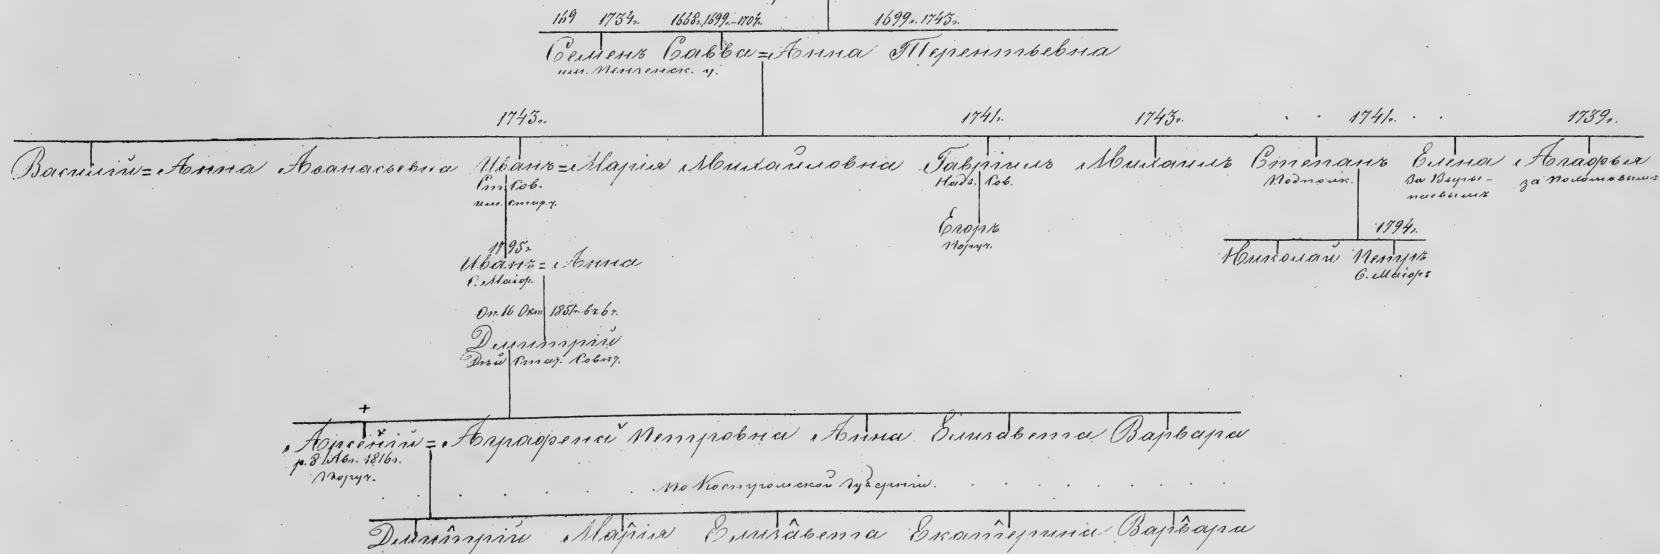 169 1734г. 1668г. 1699г.–1704г. 1699г. 1743г.
Семенъ Савва = Анна Терентьевна
им. Пензенск. у.
1743г. 1741г. 1743г. 1741г. 1739г.
Василій = Анна Аѳанасьевна Иванъ = Марія Михайловна Гавріилъ Михаилъ Степанъ Елена Агафья
Ст. Сов. Надв. Сов. Подполк. За
им. за
Егоръ
Поруч.
1795г. 1794г.
Иванъ = Анна Николай Петръ
С. Маіор. С. Маіоръ
Оп. 16 Окт 1851г. въ 6 г.
Димитрій
Дѣй Стат. Совѣт.
+
Арсеній = Аграфена Петровна Анна Елизавета Варвара
р. 8 Авг. 1816г.
Поруч.
По Костромской Губерніи.
Димитрій Марія Елизавета Екатерина Варвара